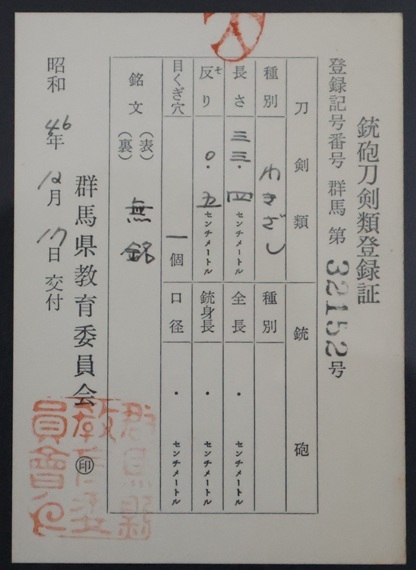 銃砲刀剣類登録証
登録記号番号 群馬 第 32152 号
刀剣類
種別 わきざし
長さ 三三・四 センチメートル
反り 〇・五 センチメートル
目くぎ穴 一個
銘文 (表) (裏) 無銘
銃砲
種別
全長 ・ センチメートル
銃身長 ・ センチメートル
口径 ・ センチメートル
昭和 46年 12月 17日 交付
群馬県教育委員会 印
群馬縣
教育委
員會印